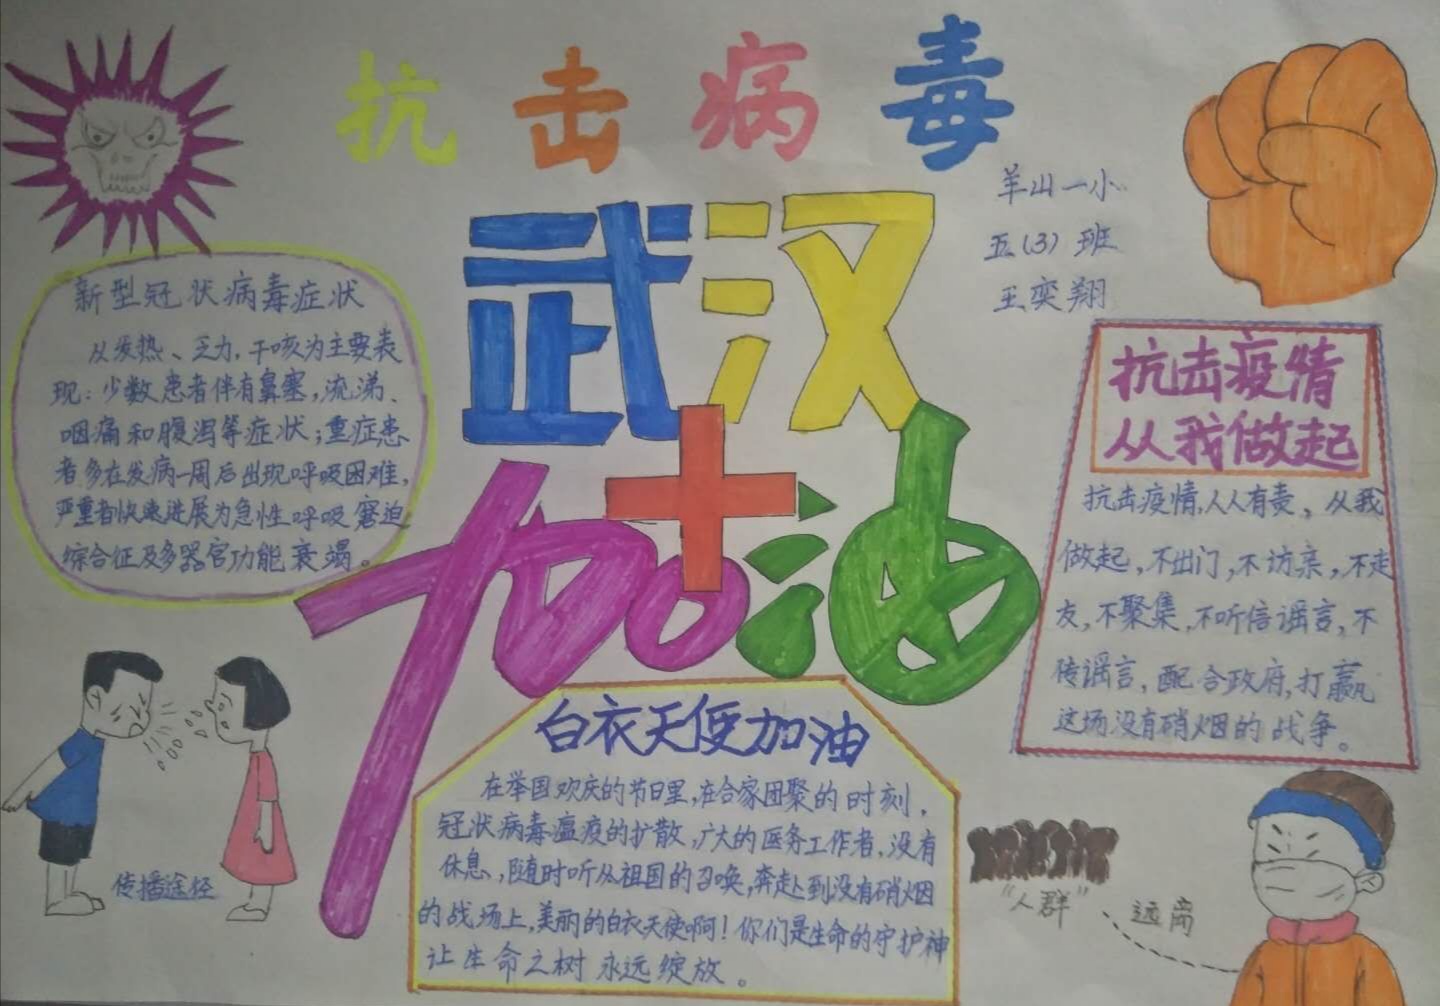 抗击病毒
武汉
加油
羊山一小
五(3)班
王奕翔
新型冠状病毒症状
从发热、乏力,干咳为主要表
现:少数患者伴有鼻塞,流涕、
咽痛和腹泻等症状;重症患
者多在发病一周后出现呼吸困难,
严重者快速进展为急性呼吸窘迫
综合征及多器官功能衰竭。
抗击疫情
从我做起
抗击疫情,人人有责,从我
做起,不出门,不访亲,不走
友,不聚集,不听信谣言,不
传谣言,配合政府,打赢
这场没有硝烟的战争。
传播途径
白衣天使加油
在举国欢庆的节日里,在合家团聚的时刻,
冠状病毒瘟疫的扩散,广大的医务工作者,没有
休息,随时听从祖国的召唤,奔赴到没有硝烟
的战场上,美丽的白衣天使啊!你们是生命的守护神
让生命之树永远绽放。
“人群”
远离